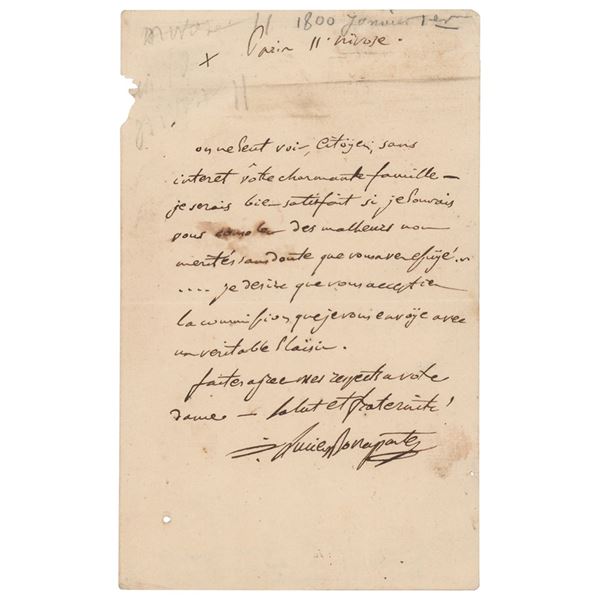 11 1800 Janvier 1er
x Paris 11 nivose.
11
on ne peut voir, Citoyen, sans
interet vôtre charmante famille —
je serais bien satisfait si je pouvais
vous consoler des malheurs non
merités sans doute que vous avez essuyé...
.... je desire que vous acceptiez
la commission que je vous envoÿe avec
un veritable plaisir.
faites agreer mes respects a votre
dame — Salut et fraternité!
Lucien Bonaparte